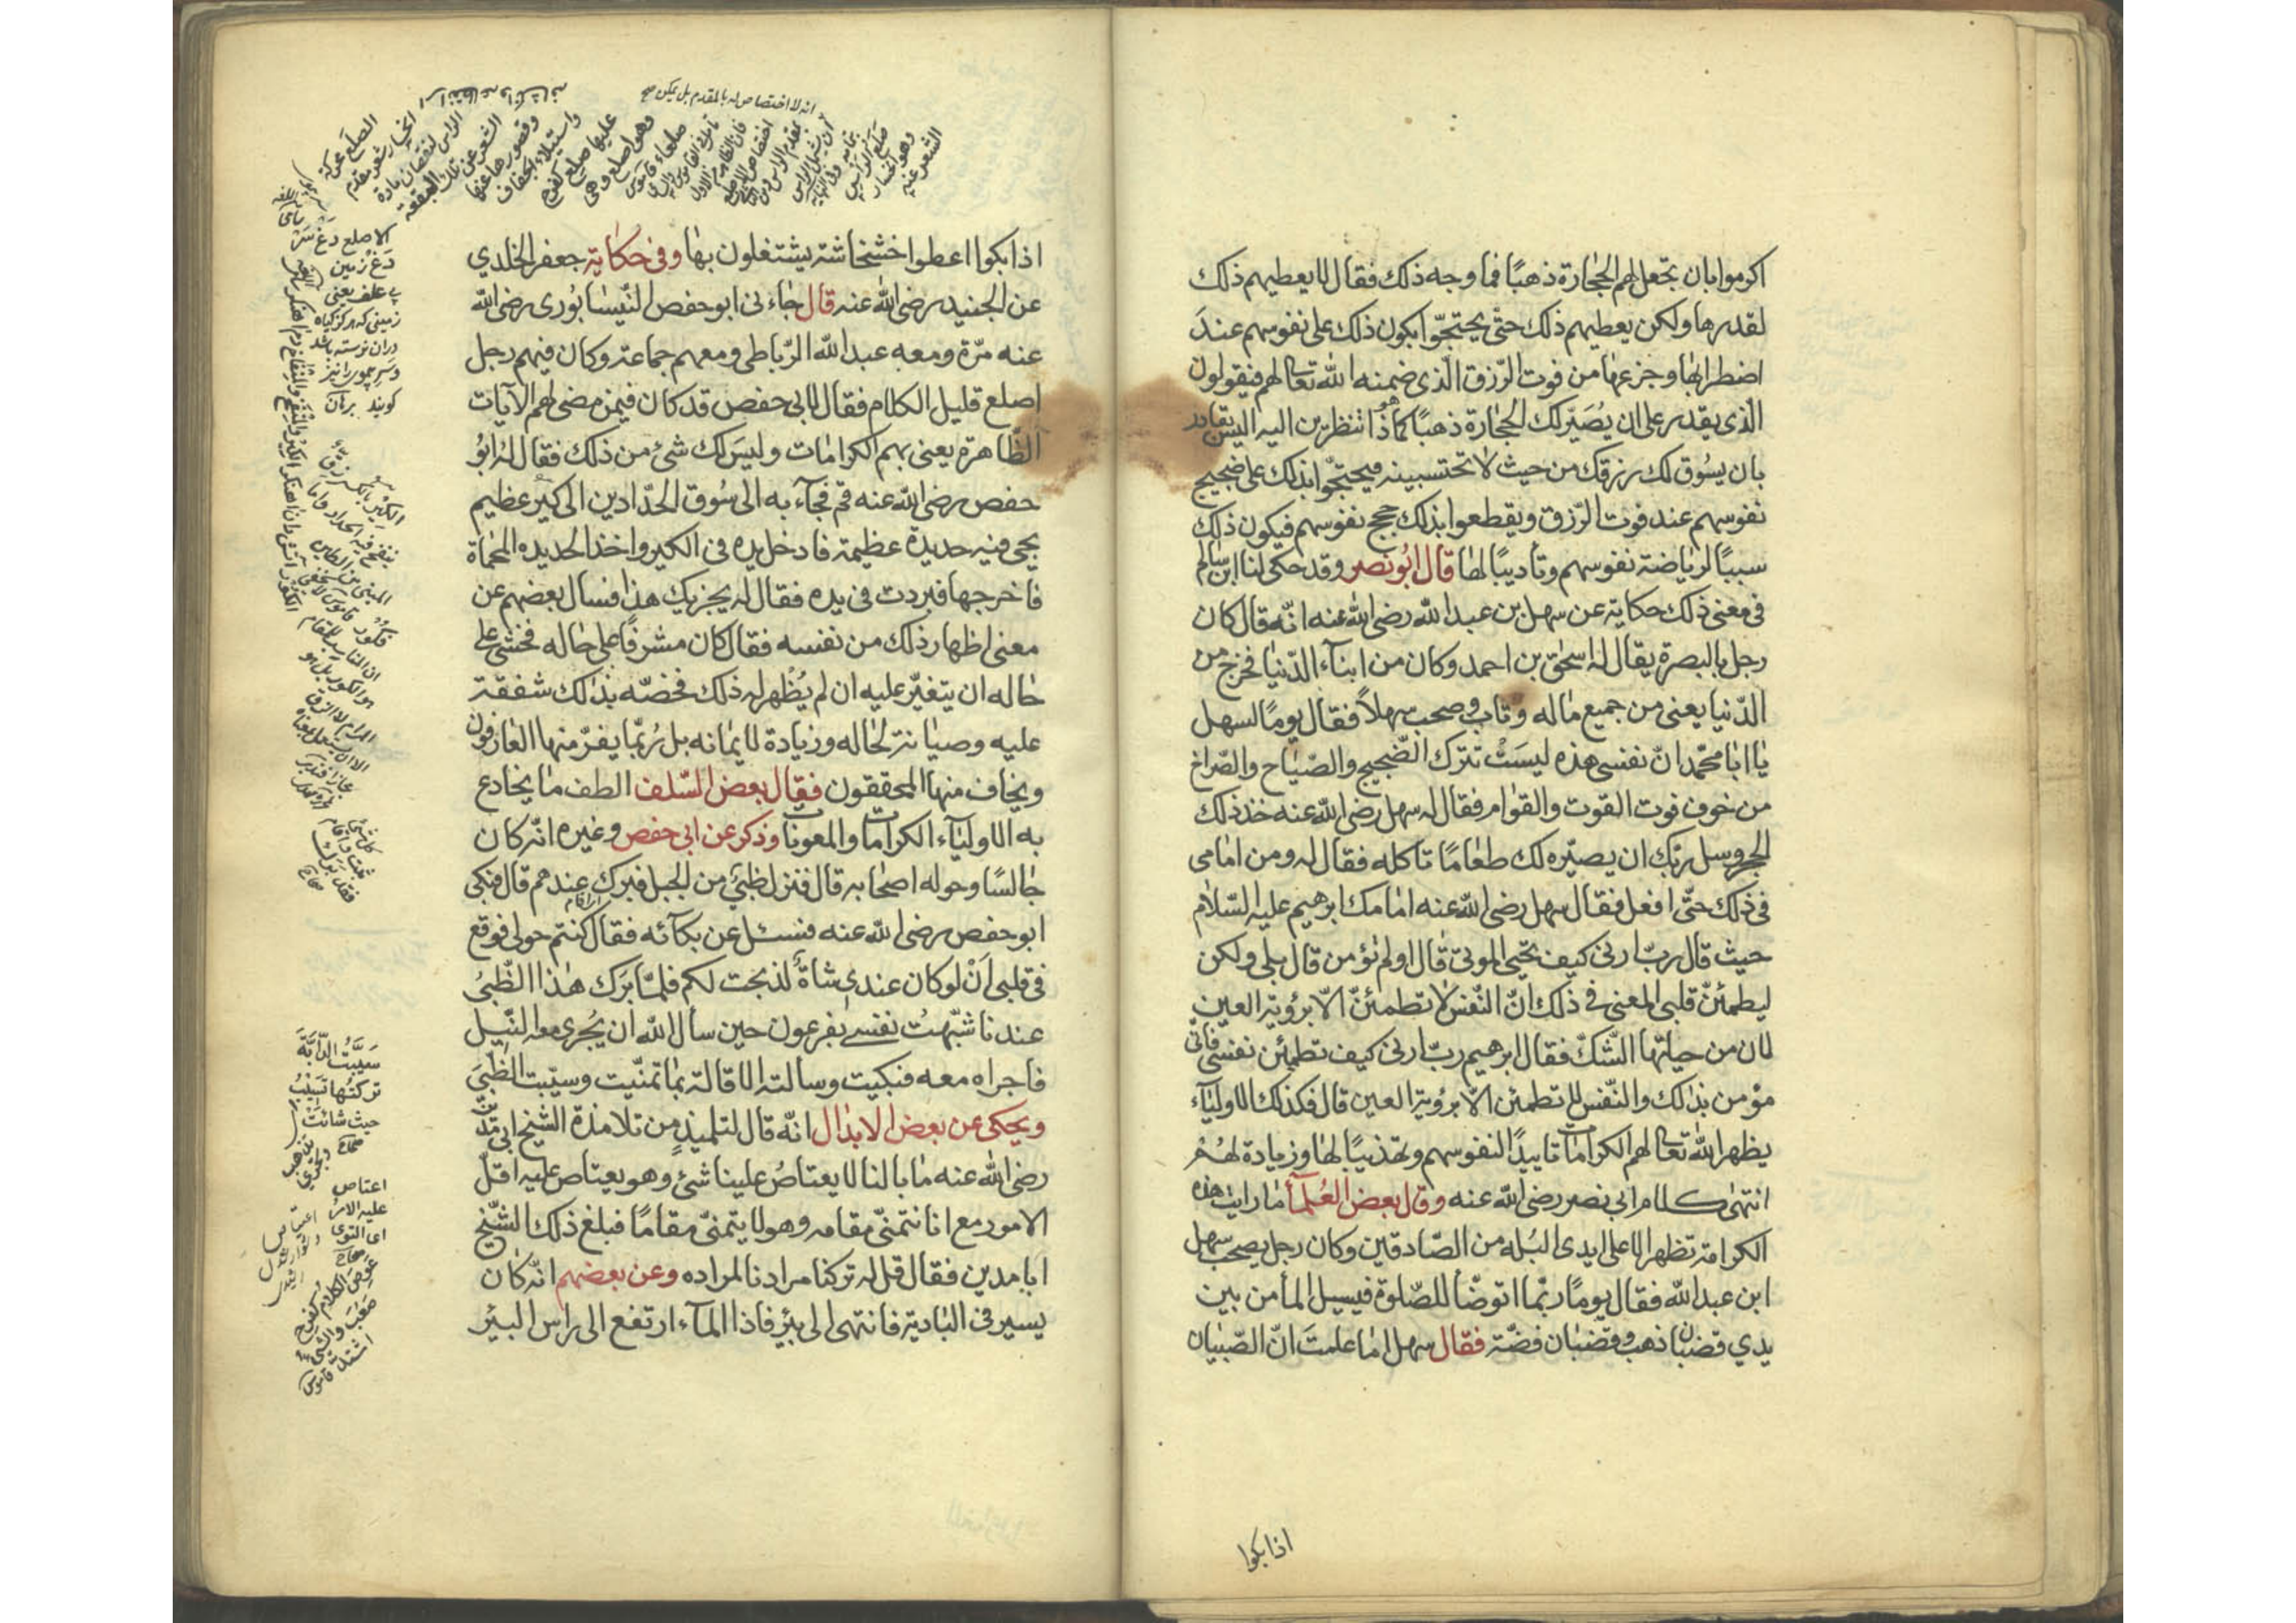 اكرموا بان تجعل لهم الحجارة ذهبًا فما وجه ذلك فقال لا يعطيهم ذلك
لقدرها ولكن يعطيهم ذلك حتّى يحتجّوا بكون ذلك على نفوسهم عندَ
اضطرابها وجزعها من فوت الرّزق الّذى ضمنه الله تعالى لهم فيقولون
الّذى يقدر على ان يُصَيّر لك الحجارة ذهبًا كما هو ذا تنظرين اليه اليس بقادر
بان يسُوق لك رزقك من حيث لا تحتسبينه فيحتجّوا بذلك على ضجيج
نفوسهم عند فوت الرّزق ويقطعوا بذلك حجج نفوسهم فيكون ذلك
سببًا لرياضة نفوسهم وتأديبًا لها قال ابُو نصر وقد حكى لنا ابن سالم
فى معنى ذلك حكاية عن سهل بن عبد الله رضى الله عنه انّه قال كان
رجل بالبصرة يقال له اسحٰق بن احمد وكان من ابنآء الدّنيا فخرج من
الدّنيا يعنى من جميع ماله وتاب وصحب سهلاً فقال يومًا لسهل
يا ابا محمّد انّ نفسى هذه ليسَتْ تترك الضّجيج والصّياح والصّراخ
من خوف فوت القوت والقوام فقال له سهل رضى الله عنه خذ ذلك
الحجر وسل ربّك ان يصيّره لك طعامًا تاكله فقال له ومن امامى
فى ذلك حتّى افعل فقال سهل رضى الله عنه امامك ابرهيم عليه السّلام
حيث قال ربّ ارنى كيف تحيى الموتى قال اولم تؤمن قال بلى ولكن
ليطمئنّ قلبى المعنى فى ذلك انّ النّفس لا تطمئنّ الاّ برؤية العين
لان من جبلتها الشّكّ فقال ابرهيم ربّ ارنى كيف تطمئن نفسى فانّى
مؤمن بذلك والنّفس لا تطمئن الاّ برؤية العين قال فكذلك الاوليآء
يظهر الله تعالى لهم الكرامات تاييدًا لنفوسهم وتهذيبًا لها وزيادة لهُمْ
انتهى كلام ابى نصر رضى الله عنه وقال بعض العُلمآء ما رايت هذه
الكرامة تظهر الا على ايدى البُله من الصّادقين وكان رجل يصحب سهل
ابن عبد الله فقال يومًا ربّما اتوضّا للصّلوة فيسيل المآء من بين
يدي قضبان ذهب وقضبان فضّة فقال سهل اما علمتَ انّ الصّبيان
اذا بكوا
اذا بكوا اعطوا خشخاشة يشتغلون بها وفى حكاية جعفر الخلدي
عن الجنيد رضى الله عنه قال جاءنى ابو حفص النّيسابُورى رضى الله
عنه مرّة ومعه عبد الله الرّباطى ومعهم جماعة وكان فيهم رجل
اصلع قليل الكلام فقال لابى حفص قد كان فيمن مضى لهم الآيات
الظّاهرة يعنى بهم الكرامات وليسَ لك شئ من ذلك فقال له ابُو
حفص رضى الله عنه قم فجآء به الى سُوق الحدّادين الى كير عظيم
يحمى فيه حديدة عظيمة فادخل يده فى الكير واخذ الحديده المحماة
فاخرجها فبردت فى يده فقال له يجزيك هذا فسال بعضهم عن
معنى اظهار ذلك من نفسه فقال كان مشرفًا على حاله فخشى على
حاله ان يتغيّر عليه ان لم يُظهر له ذلك فخصّه بذلك شفقة
عليه وصيانة لحاله وزيادة لايمانه بل رُبّما يفرّ منها العارفون
ويخاف منها المحققون فقال بعض السّلف الطف ما يخادع
به الاوليآء الكرامات والمعونات وذكر عن ابى حفص وغيره انّه كان
جالسًا وحوله اصحابه قال فنزل ظبىٌ من الجبل فبرك عندهم قال فبكى
ابو حفص رضى الله عنه فسئل عن بكآئه فقال كنتم حولى فوقع
فى قلبى اَنْ لو كان عندى شاةٌ لذبحت لكم فلمّا بَرَك هٰذا الظّبىُ
عندنا شبّهتُ نفسى بفرعون حين سأل الله ان يُجرى معه النّيل
فاجراه معه فبكيت وسالته الاقالة بما تمنّيت وسيّبت الظّبىَ
ويحكى عن بعض الابدال انّه قال لتلميذٍ من تلامذة الشيخ ابى مَدْيَن
رضى الله عنه ما بالنا لا يعتاصُ علينا شئ وهو يعتاص عليه اقلّ
الامور مع انا نتمنّى مقامه وهو لا يتمنّى مقامًا فبلغ ذلك الشّيخ
ابا مدين فقال قل له تركنا مرادنا لمراده وعن بعضهم انّه كان
يسير فى البادية فانتهى الى بئر فاذا المآء ارتفع الى راس البئر
انه لا اختصاص له بالمقدم بل يمكن
الصلع محركة
انحسار شعر مقدم
الراس لنقصان مادة
الشعر عن تلك البقعة
وقصورها عنها
واستيلاء الجفاف
عليها صلع كفرح
وهو اصلع وهى
صلعاء قاموس
الاصلع
زمينى كه هرگز گياه
دران نرسته باشد
گويند برهان
سَيَّبْتُ الدّابَّةَ
تركتُها تَسِيبُ
حيث شائت
صحاح
اعتاص
عليه الامر
اى التوى
صحاح